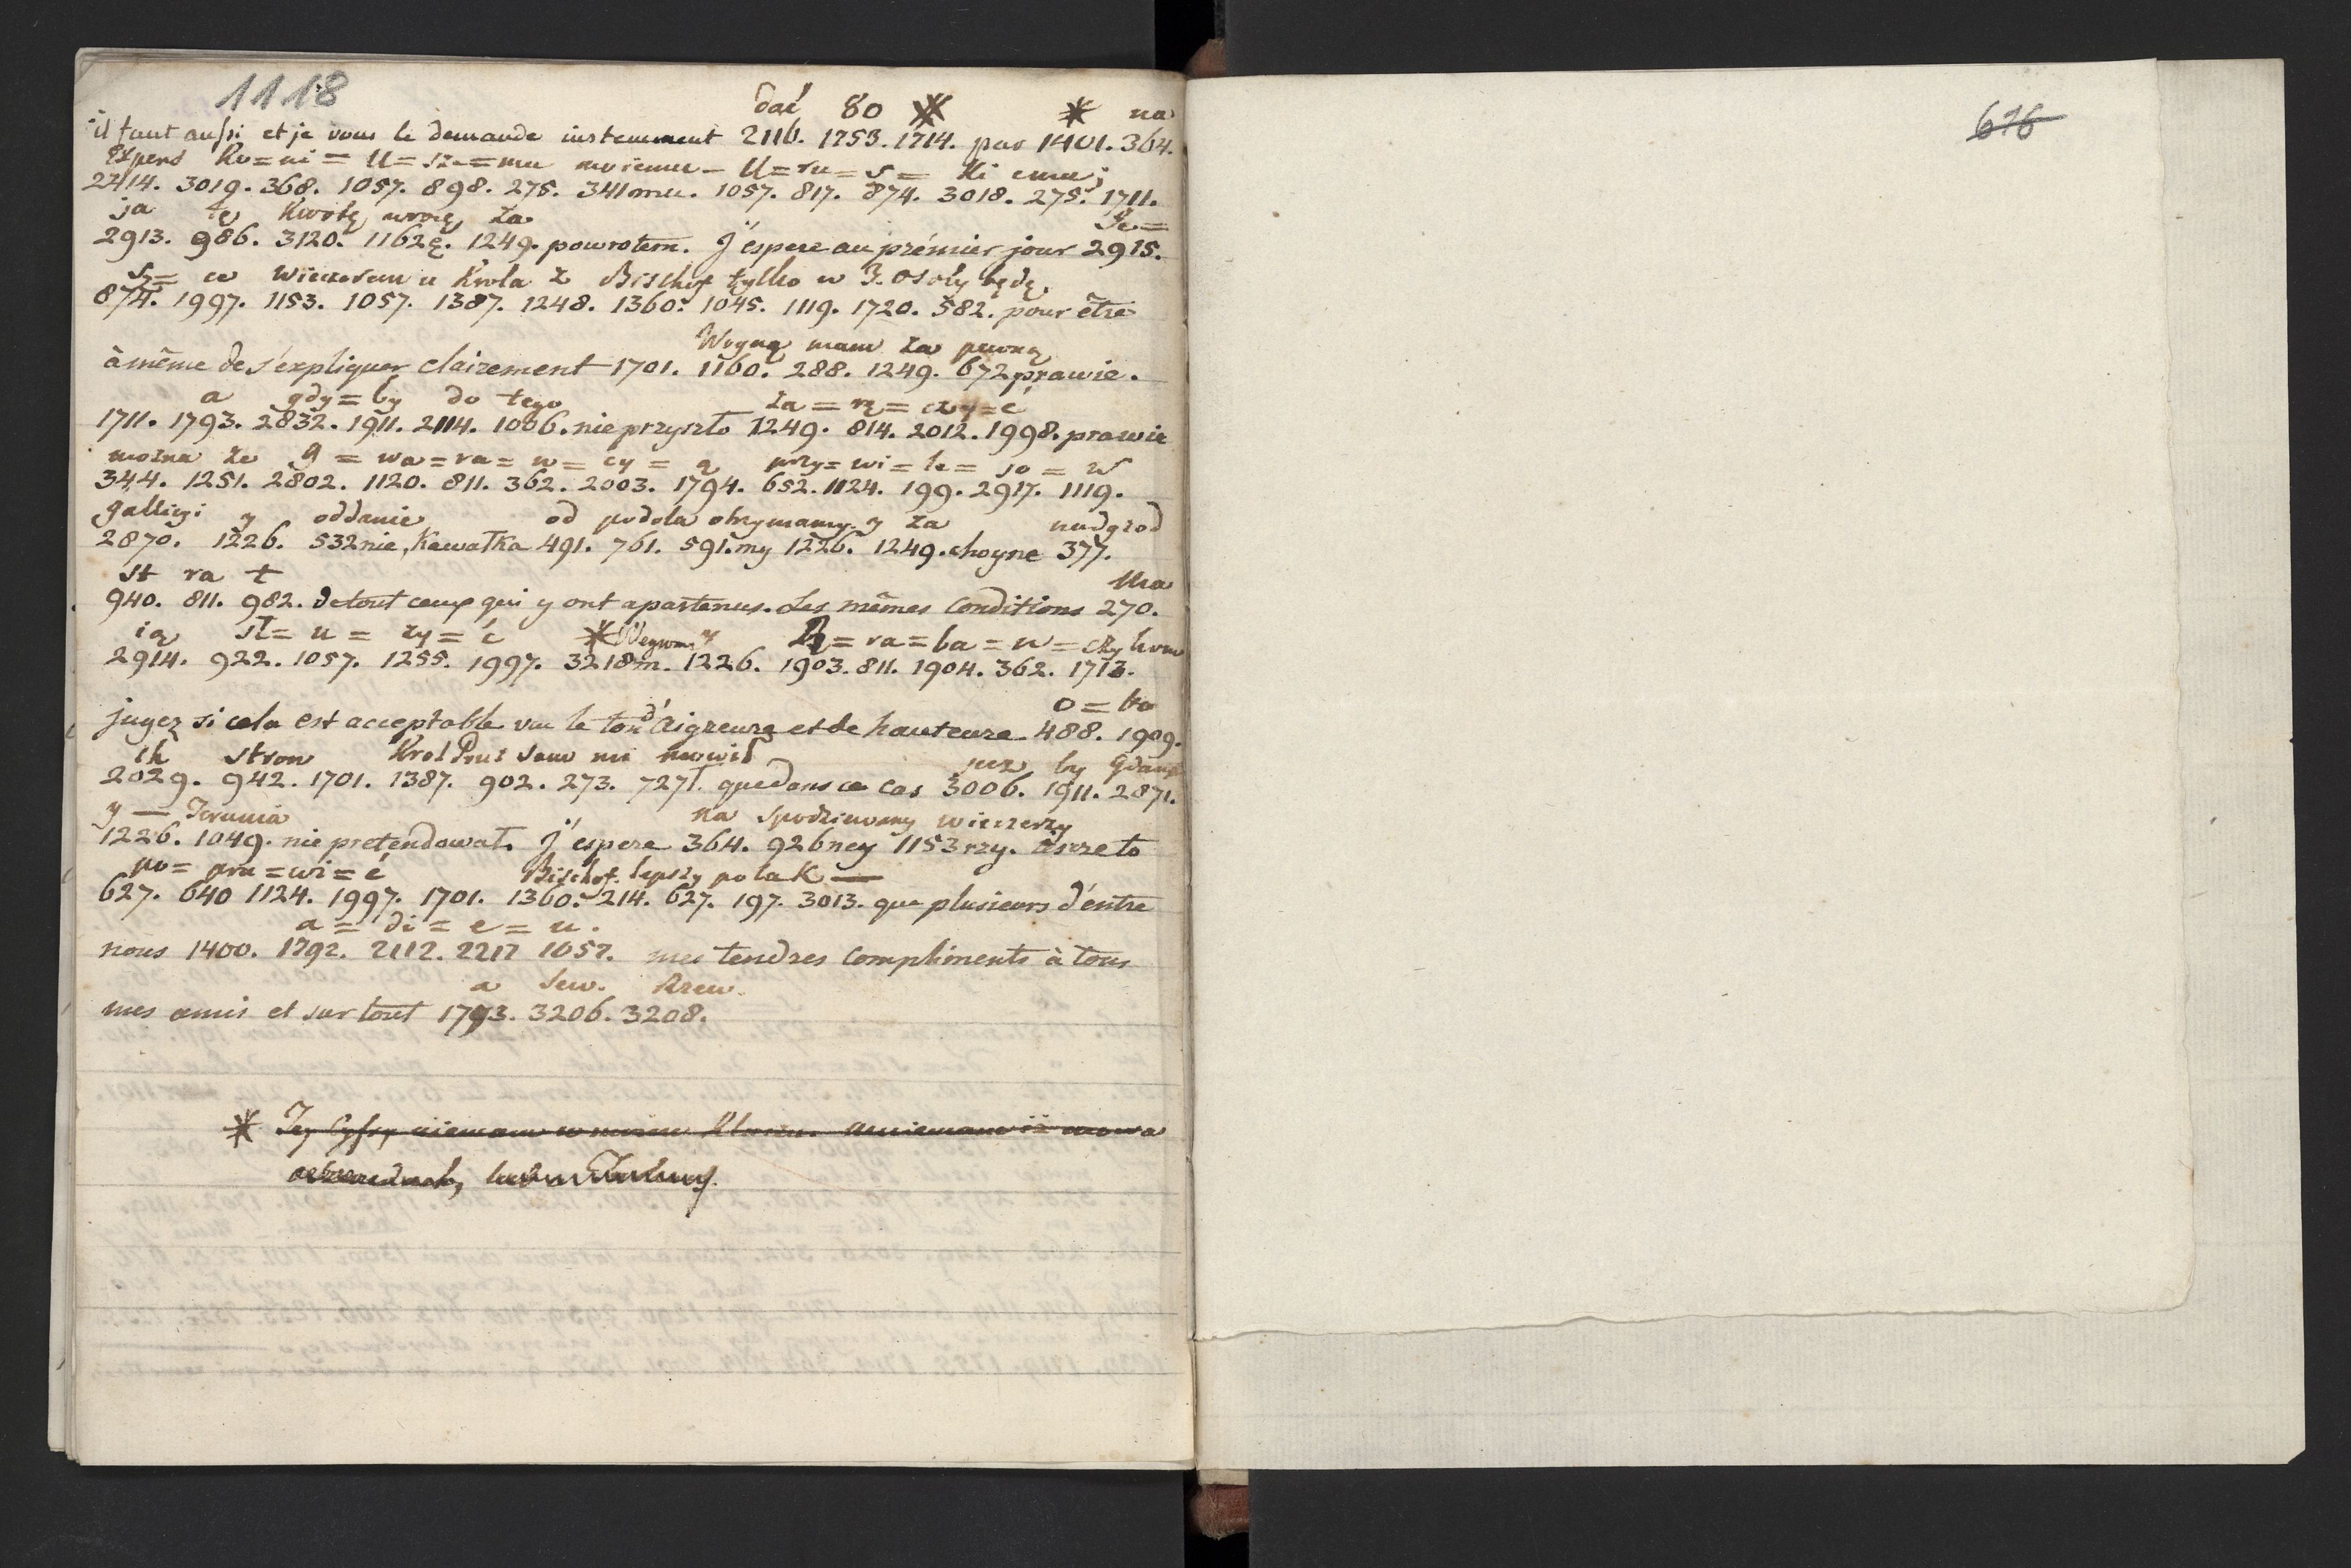 1118
dać 80 ⁎ ⁎ na
il faut aussi et je vous le demande instemment 2116. 1753. 1714. par 1401. 364.
Expens Ko=ni= U=sze=mu mojemu - U=ru=s= ki emu;
2414. 3019. 368. 1057. 898. 275. 341mu. 1057. 817. 874. 3018. 275. 1711.
ja tę kwotę wrocę za Je=
2913. 986. 3120. 1162ę. 1249. powrotem. J'éspere au prémier jour 2915.
sz= ce wieczorem u Krola z Bischof tylko w 3. osoby będę.
874. 1997. 1153. 1057. 1387. 1248. 1360. 1045. 1119. 1720. 582. pour être
Woyną mam za pewną
à même de s'expliquer clairement 1701. 1160. 288. 1249. 672 prawie.
a gdy=by do tego za=rę=czy=ć
1711. 1793. 2832. 1911. 2114. 1006. nie przyszło 1249. 814. 2012. 1998. prawie
można że g=wa=ra=n=cy=ą przy=wi=le=jo=w
344. 1251. 2802. 1120. 811. 362. 2003. 1794. 652. 1124. 199. 2917. 1119.
gallicyi y oddanie od podola otrzymamy y za nadgrod
2870. 1226. 532nie, Kawałka 491. 761. 591.my 1226. 1249. choyne 377.
st ra t Ma
940. 811. 982. de tout ceux qui y ont apartenus. Les mêmes Conditions 270.
ią sł=u=zy=ć ⁎ y B=ra=ba=n=czykom
2914. 922. 1057. 1255. 1997. 3218m. 1226. 1903. 811. 1904. 362. 1713.
o=bo
jugez si cela est acceptable vu le ton d'aigreure et de hauteure 488. 1909.
ch stron Krol Prus sam mi mowił jez by Gdańs
2029. 942. 1701. 1387. 902. 273. 727ł. que dans ce cas 3006. 1911. 2871.
y — Torunia na spodziewany wieczerzy
1226. 1049. nie pretendował. J'éspere 364. 926ney 1153rzy. iesze to
po=pra=wi=ć Bischof. lepszy po la K —
627. 640 1124. 1997. 1701. 1360. 214. 627. 197. 3013. que plusieurs d'entre
a=di=e=u.
nous 1400. 1792. 2112. 2217 1057. mes tendres compliments à tous
a Sew. Rzew.
mes amis et sur tout 1793. 3206. 3208.
⁎ Tey Cyfry niemam w moim Kluczu.
676